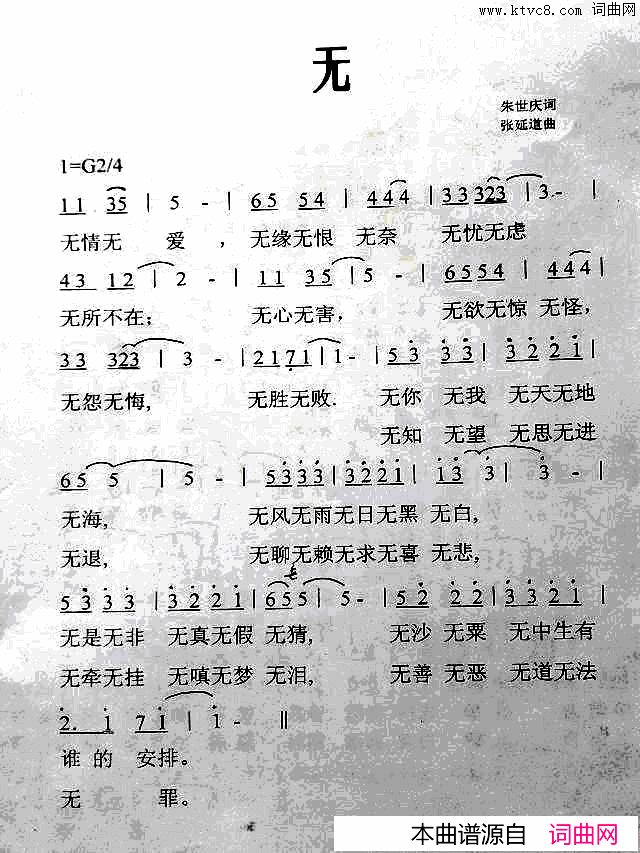 www.ktvc8.com 词曲网
无
朱世庆词
张延道曲
1=G2/4
1 1 3 5 | 5 - | 6 5 5 4 | 4 4 4 | 3 3 3 2 3 | 3 - |
无情无 爱 , 无缘无恨 无奈 无忧无虑
4 3 1 2 | 2 - | 1 1 3 5 | 5 - | 6 5 5 4 | 4 4 4 |
无所不在; 无心无害, 无欲无惊 无怪,
3 3 3 2 3 | 3 - | 2 1 7 1 | 1 - | 5 3 3 3 | 3 2 2 1 |
无怨无悔, 无胜无败. 无你 无我 无天无地
无知 无望 无思无进
6 5 5 | 5 - | 5 3 3 3 | 3 2 2 1 | 1 3 3 | 3 - |
无海, 无风无雨无日无黑 无白,
无退, 无聊无赖无求无喜 无悲,
5 3 3 3 | 3 2 2 1 | 6 5 5 | 5 - | 5 2 2 2 | 3 3 2 1 |
无是无非 无真无假 无猜, 无沙 无粟 无中生有
无牵无挂 无嗔无梦 无泪, 无善 无恶 无道无法
2. 1 7 1 | 1 - ‖
谁的 安排。
无 罪。
本曲谱源自 词曲网